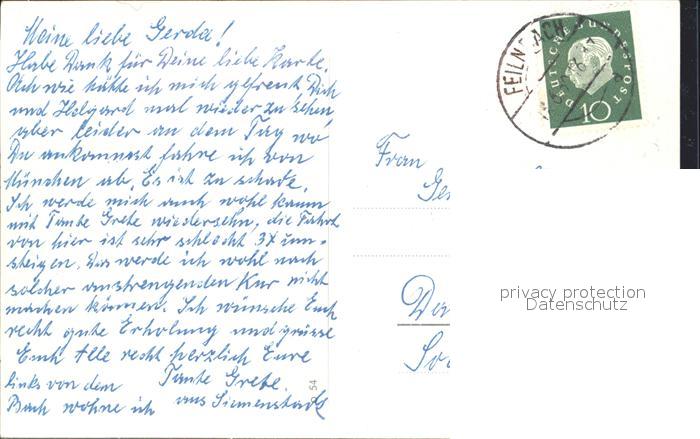 Meine liebe Gerda!
Habe Dank für Deine liebe Karte.
Ach wie hätte ich mich gefreut Dich
und Helgard mal wieder zu sehen
aber leider an dem Tag wo
Du ankommst fahre ich von
München ab. Es ist zu schade.
Ich werde mich auch wohl kaum
mit Tante Grete wiedersehn, die Fahrt
von hier ist sehr schlecht 3x um-
steigen. Das werde ich wohl nach
solcher anstrengenden Kur nicht
machen können. Ich wünsche Euch
recht gute Erholung und grüsse
Euch Alle recht herzlich Eure
Tante Grete.
aus Siemenstadt
links von dem
Bach wohne ich
54
FEILNBACH
DEUTSCHE BUNDESPOST
10
Frau
Ge
Da
So
privacy protection
Datenschutz